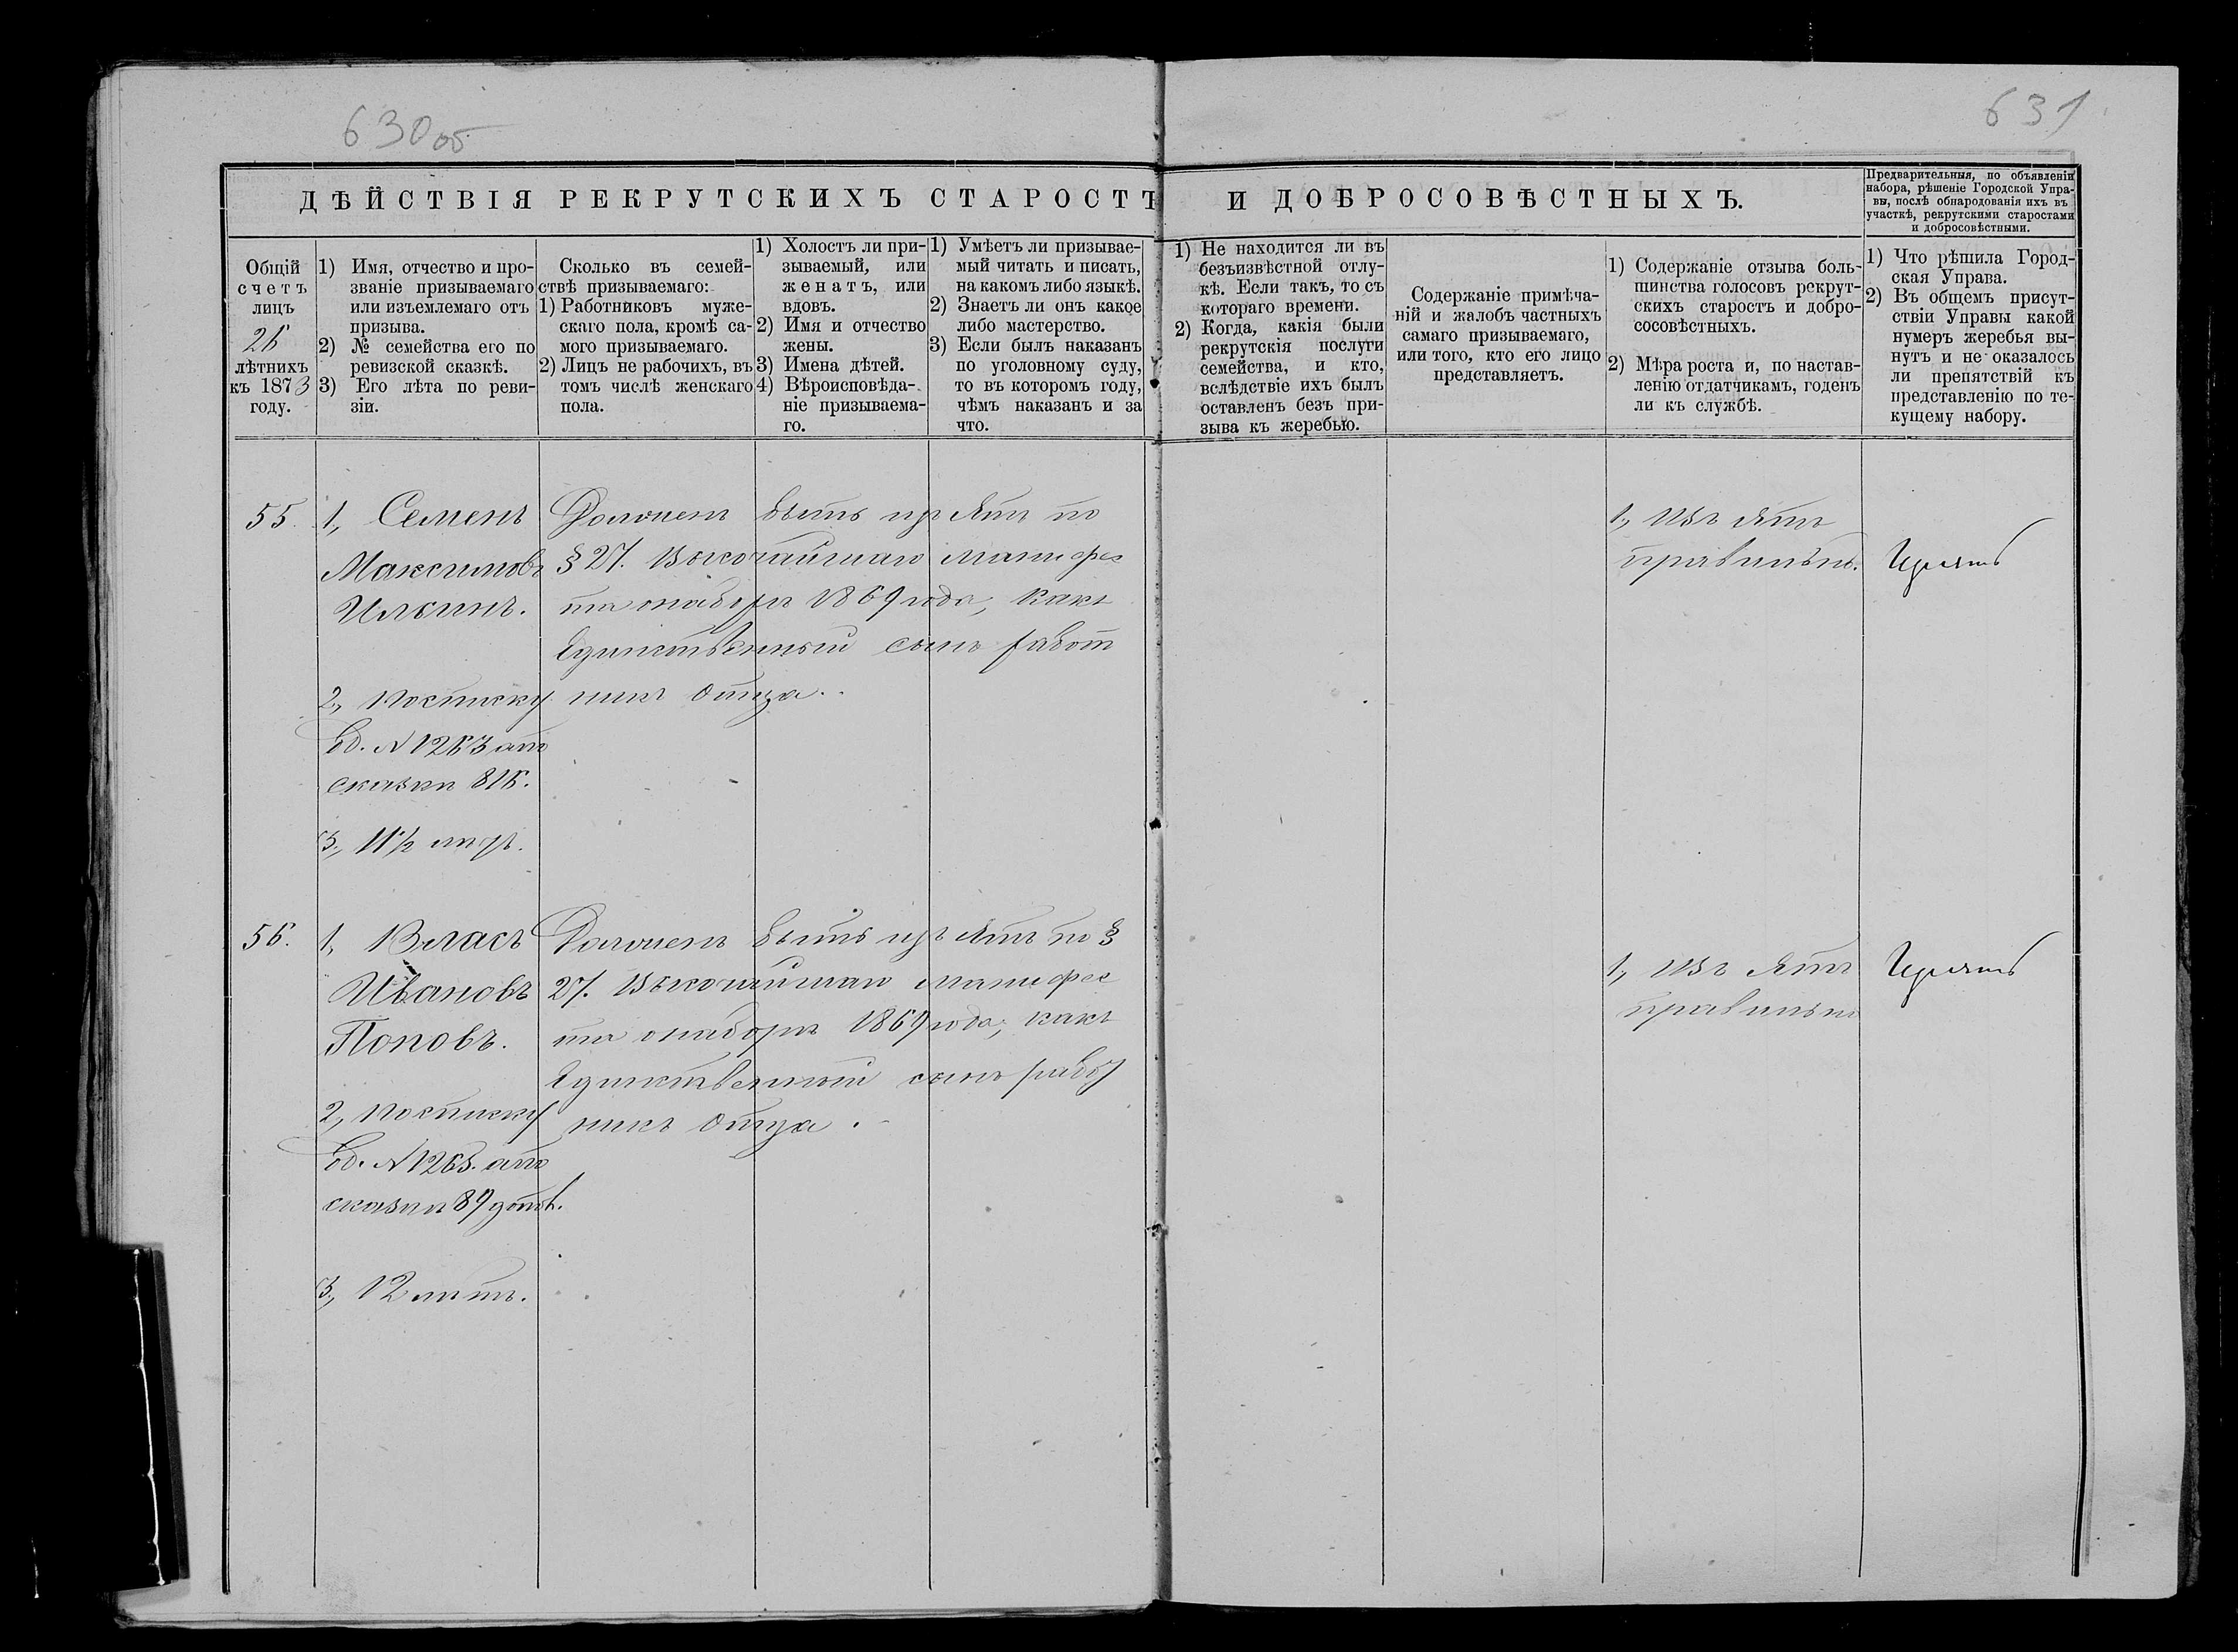 630об
631
ДѢЙСТВІЯ РЕКРУТСКИХЪ СТАРОСТЪ И ДОБРОСОВѢСТНЫХЪ.
Предварительныя, по объявленіи
набора, рѣшеніе Городской Упра-
вы, послѣ обнародованія ихъ въ
участкѣ, рекрутскими старостами
и добросовѣстными.
Общій
счетъ
лицъ
26
лѣтнихъ
къ 1873
году.
1) Имя, отчество и про-
званіе призываемаго
или изъемлемаго отъ
призыва.
2) № семейства его по
ревизской сказкѣ.
3) Его лѣта по реви-
зіи.
Сколько въ семей-
ствѣ призываемаго:
1) Работниковъ муже-
скаго пола, кромѣ са-
мого призываемаго.
2) Лицъ не рабочихъ, въ
томъ числѣ женскаго
пола.
1) Холостъ ли при-
зываемый, или
женатъ, или
вдовъ.
2) Имя и отчество
жены.
3) Имена дѣтей.
4) Вѣроисповѣда-
ніе призываема-
го.
1) Умѣетъ ли призывае-
мый читать и писать,
на какомъ либо языкѣ.
2) Знаетъ ли онъ какое
либо мастерство.
3) Если былъ наказанъ
по уголовному суду,
то въ которомъ году,
чѣмъ наказанъ и за
что.
1) Не находится ли въ
безъизвѣстной отлу-
кѣ. Если такъ, то съ
котораго времени.
2) Когда, какія были
рекрутскія послуги
семейства, и кто,
вслѣдствіе ихъ былъ
оставленъ безъ при-
зыва къ жеребью.
Содержаніе примѣча-
ній и жалобъ частныхъ
самаго призываемаго,
или того, кто его лицо
представляетъ.
1) Содержаніе отзыва боль-
шинства голосовъ рекрут-
скихъ старостъ и добро-
сосовѣстныхъ.
2) Мѣра роста и, по настав-
ленію отдатчикамъ, годенъ
ли къ службѣ.
1) Что рѣшила Город-
ская Управа.
2) Въ общемъ присут-
ствіи Управы какой
нумеръ жеребья вы-
нутъ и не оказалось
ли препятствій къ
представленію по те-
кущему набору.
55.
1, Семенъ
Максимовъ
Илюинъ.
2, по списку
В.д. № 1263 а по
сказкѣ 816.
3, 11½ лѣтъ.
Долженъ быть изъятъ по
§ 27. Высочайшаго манифес
та о наборѣ 1869 года, какъ
единственный сынъ работ
никъ отца.
1, Изъятъ
правильно.
Изъятъ
56.
1, Власъ
Ивановъ
Поповъ.
2, по списку
В.д. № 1263. а по
сказкѣ 89
3, 12 лѣтъ.
Долженъ быть изъятъ по §
27. Высочайшаго манифес
та о наборѣ 1869 года, какъ
единственный сынъ работ
никъ отца.
1, Изъятъ
правильно
Изъятъ